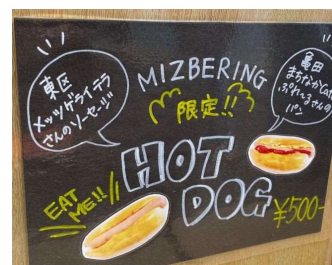 東区
メッツゲライテラ
さんのソーセージ
MIZBERING
限定!!
亀田
まちなかCafe
ぷれーるさんの
パン
HOT
DOG
EAT
ME!!
¥500-